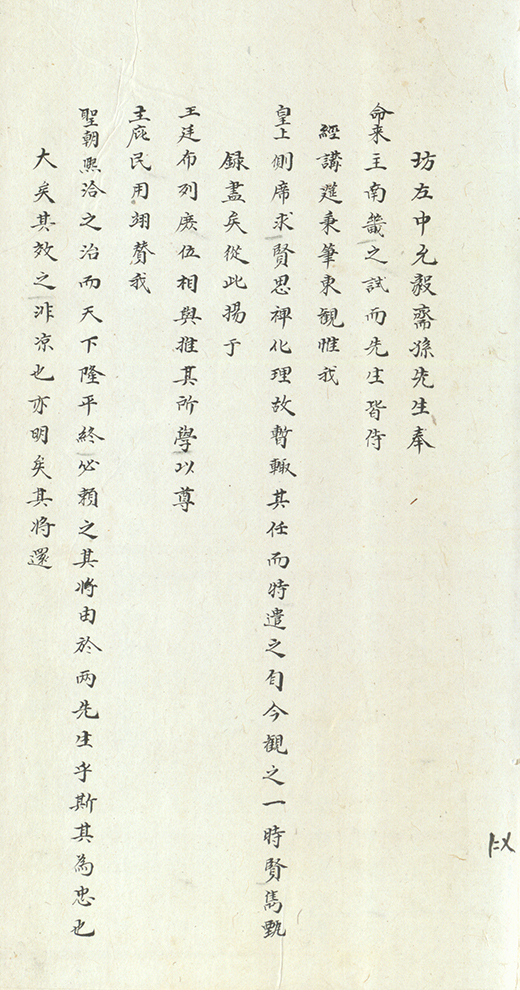 坊左中允毅齋孫先生奉
命來主南畿之試而先生皆侍
經講筵秉筆東觀惟我
皇上側席求賢思裨化理故暫輟其任而特遣之自今觀之一時賢雋甄
錄盡矣從此揚于
王廷布列庶位相與推其所學以尊
主庇民用翊贊我
聖朝熙洽之治而天下隆平終必賴之其將由於两先生乎斯其為忠也
大矣其效之非凉也亦明矣其將還